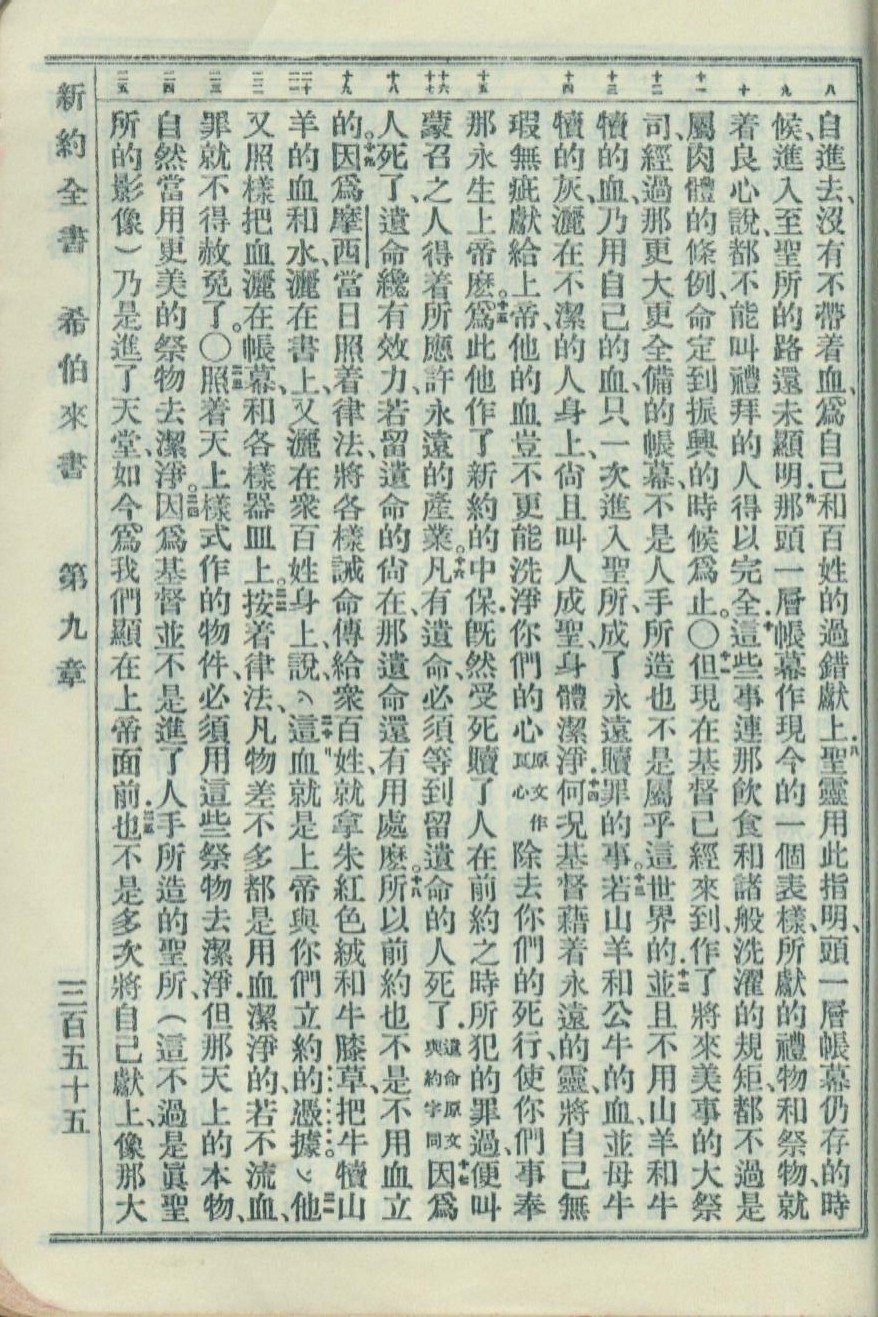 八 九 十 十一 十二 十三 十四 十五 十六 十七 十八 十九 二十 二一 二二 二三 二四 二五
自進去、沒有不帶着血、爲自己和百姓的過錯獻上、八聖靈用此指明、頭一層帳幕仍存的時
候、進入至聖所的路還未顯明、九那頭一層帳幕作現今的一個表樣、所獻的禮物和祭物、就
着良心說、都不能叫禮拜的人得以完全、十這些事連那飲食和諸般洗濯的規矩、都不過是
屬肉體的條例、命定到振興的時候爲止。〇十一但現在基督已經來到、作了將來美事的大祭
司、經過那更大更全備的帳幕、不是人手所造也不是屬乎這世界的。十二並且不用山羊和牛
犢的血、乃用自己的血、只一次進入聖所、成了永遠贖罪的事。十三若山羊和公牛的血、並母牛
犢的灰、灑在不潔的人身上、尙且叫人成聖身體潔淨、十四何况基督藉着永遠的靈、將自己無
瑕無疵獻給上帝、他的血豈不更能洗淨你們的心原文作良心除去你們的死行、使你們事奉
那永生上帝麽。十五爲此他作了新約的中保、旣然受死贖了人在前約之時所犯的罪過、便叫
蒙召之人得着所應許永遠的產業。十六凡有遺命、必須等到留遺命的人死了、遺命原文與約字同十七因爲
人死了、遺命纔有效力、若留遺命的尙在、那遺命還有用處麽。十八所以前約也不是不用血立
的。十九因爲摩西當日照着律法、將各樣誡命傳給衆百姓、就拿朱紅色絨和牛膝草、把牛犢山
羊的血和水、灑在書上、又灑在衆百姓身上、說、二十『這血就是上帝與你們立約的憑據。』二一他
又照樣把血灑在帳幕、和各樣器皿上。二二按着律法、凡物差不多都是用血潔淨的、若不流血、
罪就不得赦免了。〇二三照着天上樣式作的物件、必須用這些祭物去潔淨、但那天上的本物、
自然當用更美的祭物去潔淨。二四因爲基督並不是進了人手所造的聖所、（這不過是眞聖
所的影像）乃是進了天堂、如今爲我們顯在上帝面前、二五也不是多次將自己獻上、像那大
新約全書 希伯來書 第九章 三百五十五